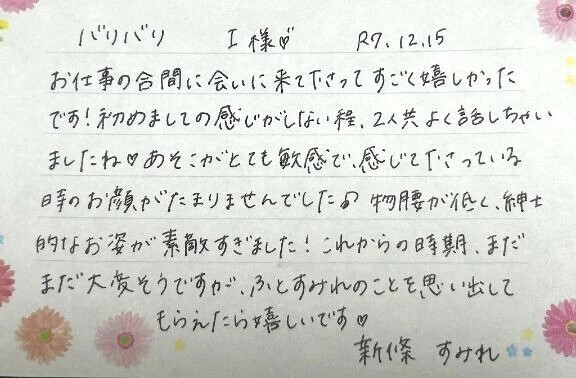 バリバリ I様♡ R7.12.15
お仕事の合間に会いに来て下さってすごく嬉しかった
です！初めましての感じがしない程、2人共よく話しちゃい
ましたね♡あそこがとても敏感で、感じて下さっている
時のお顔がたまりませんでした♪物腰が低く、紳士
的なお姿が素敵すぎました！これからの時期、まだ
まだ大変そうですが、ふとすみれのことを思い出して
もらえたら嬉しいです♡
新條 すみれ